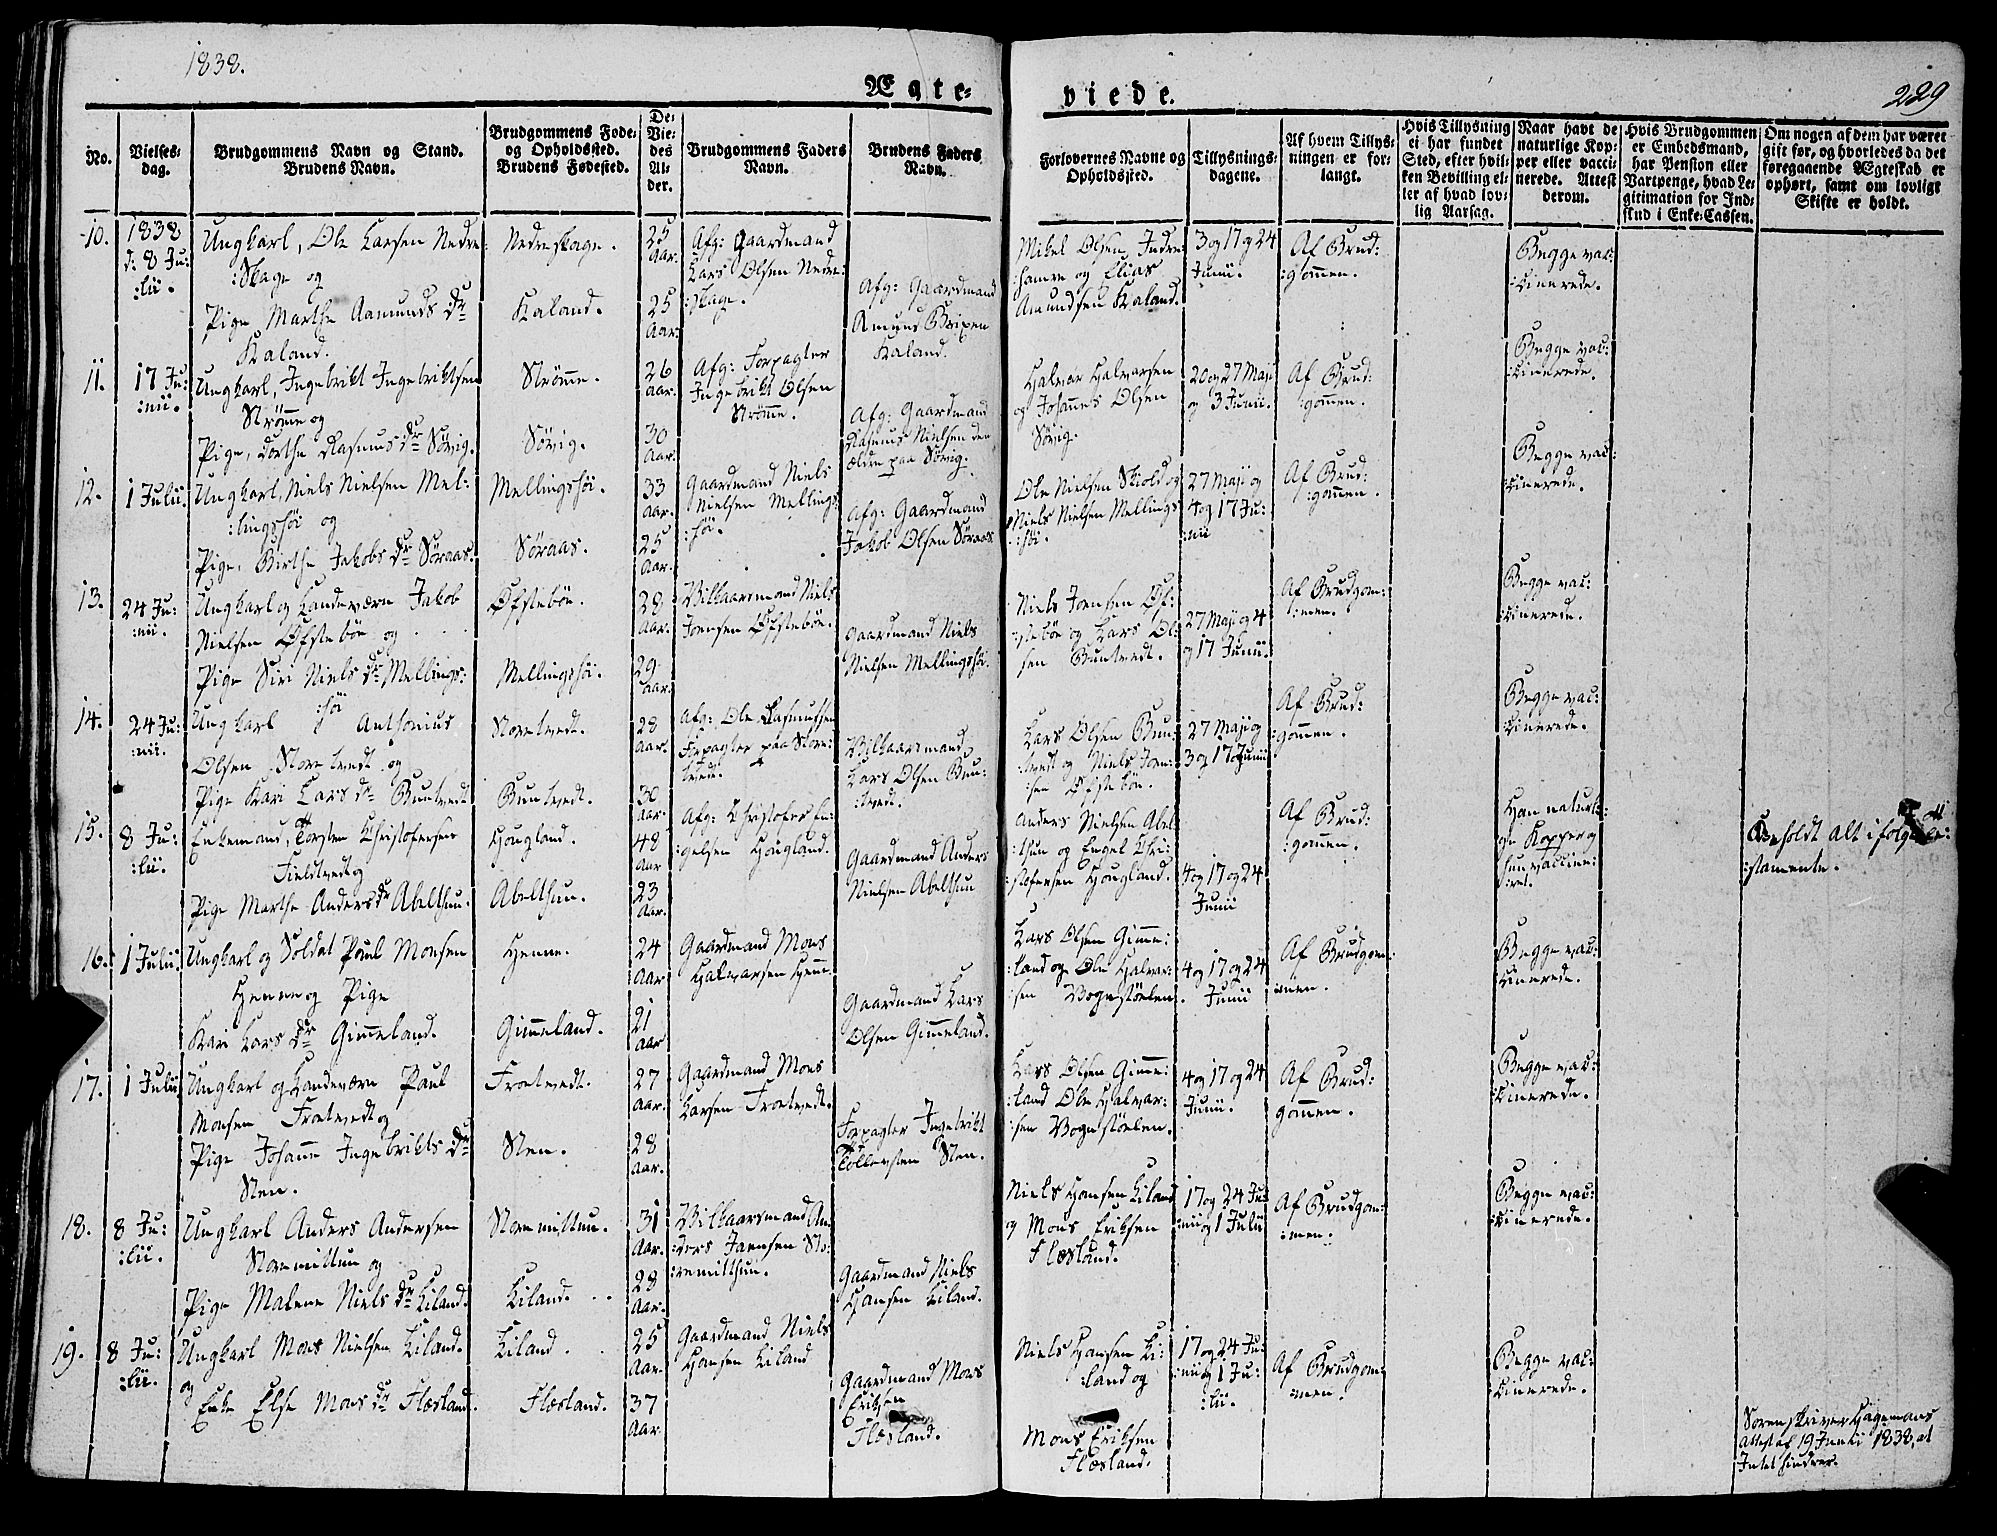 1838.
229
Ægte-
viede.
No.
Vielses-
dag.
Brudgommens Navn og Stand.
Brudens Navn.
Brudgommens Føde-
og Opholdssted.
Brudens Fødested.
De
Vie-
des
Al-
der.
Brudgommens Faders
Navn.
Brudens Faders
Navn.
Forlovernes Navne og
Opholdssted.
Tillysnings-
dagene.
Af hvem Tillys-
ningen er for-
langt.
Hvis Tillysning
ei har fundet
Sted, efter hvil-
ken Bevilling el-
ler af hvad lov-
lig Aarsag.
Naar havt de
naturlige Kop-
per eller vacci-
nerede. Attest
derom.
Hvis Brudgommen
er Embedsmand,
har Pension eller
Vartpenge, hvad Le-
gitimation for Ind-
skud i Enke-Cassen.
Om nogen af dem har været
gift før, og hvorledes da det
foregaaende Ægteskab er
ophørt, samt om lovligt
Skifte er holdt.
10.
1838
d: 8 Ju:
:lii.
Ungkarl, Ole Larsen Nedre:
:Skage og
Pige Marthe Aamunds Dr
Kaland.
Nedreskage.
Kaland.
25
Aar.
25
Aar.
Afg: Gaardmand
Lars Olsen Nedre:
:skage.
Afg: Gaardmand
Amund Brixen
Kaland.
Mikel Olsen Indre:
:hamre og Elias
Amundsen Kaland.
3 og 17 og 24
Junii.
Af Brud:
:gommen.
Begge vac:
:cinerede.
11.
17 Ju:
:nii.
Ungkarl, Ingebrikt Ingebriktsen
Strømme og
Pige, Dorthe Rasmus Dr Søvig.
Strømme.
Søvig.
26
Aar.
30
Aar.
Afg: Forpagter
Ingebrikt Olsen
Strømme.
Afg: Gaardmand
Rasmus Nielsen den
ældre paa Søvig.
Halvor Halvorsen
og Johannes Olsen
Søvig.
20 og 27 Maji
og 3 Junii.
Af Brud:
:gommen.
Begge vac:
:cinerede.
12.
1 Julii.
Ungkarl, Niels Nielsen Mel:
:lingshøi og
Pige, Birthe Jakobs Dr Søraas.
Mellingshøi.
Søraas.
33
Aar.
25
Aar.
Gaardmand Niels
Nielsen Mellings:
:høi.
Afg: Gaardmand
Jakob Olsen Søraas
Ole Nielsen Skiold og
Niels Nielsen Mellings
:høi.
27 Maji og
4 og 17 Ju:
:nii
Af Brud:
:gommen.
Begge vac:
:cinerede.
13.
24 Ju:
:nii.
Ungkarl og Landeværn Jakob
Nielsen Øfstebøe og
Pige Siri Niels Dr Mellings:
:høi
Øfstebøe.
Mellingshøi.
28
Aar.
29
Aar.
Vilkaarsmand Niels
Joensen Øfstebøe.
Gaardmand Niels
Nielsen Mellingshøi.
Niels Joensen Øf:
:stebøe og Lars Ol:
sen Buntvedt.
27 Maji og 4
og 17 Junii.
Af Brudgom:
:men.
Begge vac:
:cinerede.
14.
24 Ju:
:nii.
Ungkarl Anthonius
Olsen Storetvedt og
Pige Kari Lars Dr Buntvedt
Storetvedt.
Buntvedt.
28
Aar.
30
Aar.
Afg: Ole Rasmussen
Forpagter paa Store:
tvedt.
Vilkaarsmand
Lars Olsen Bun:
:tvedt.
Lars Olsen Bun:
:tvedt og Niels Joen:
:sen Øfstebøe.
27 Maji og
3 og 17 Junii
Af Brud:
:gommen.
Begge vac:
:cinerede.
15.
8 Ju:
:lii.
Enkemand, Torsten Christofersen
Fieldtvedt og
Pige Marthe Anders Dr Abelthun.
Hougland.
Abelthun.
48
Aar
23
Aar.
Afg: Christofer En:
:gelsen Hougland.
Gaardmand Anders
Nielsen Abelthun
Anders Nielsen Abel:
thun og Engel Chri:
:stofersen Hougland.
4 og 17 og 24
Junii
Af Brud:
:gommen.
Han naturli:
:ge Kopper og
hun vaccine:
:ret.
Beholdt alt i følge Te:
:stamente.
16.
1 Julii
Ungkarl og Soldat Poul Monsen
Henne og Pige
Kari Lars Dr Gimmeland.
Henne.
Gimmeland.
24
Aar
21
Aar
Gaardmand Mons
Halvorsen Henne.
Gaardmand Lars
Olsen Gimmeland.
Lars Olsen Gimme:
:land og Ole Halvor:
:sen Vognstølen.
4 og 17 og 24
Junii
Af Brudgom:
:men.
Begge vac:
:cinerede.
17.
1 Julii
Ungkarl og Landeværn Paul
Monsen Frotvedt og
Pige Johanne Ingebrikts Dr
Steen.
Frotvedt.
Steen.
27
Aar.
28
Aar.
Gaardmand Mons
Larsen Frotvedt.
Forpagter Ingebrikt
Tollevsen Steen.
Lars Olsen Gimme:
:land Ole Halvor:
:sen Vognstølen.
4 og 17 og 24
Junii.
Af Brud:
gommen.
Begge vac:
:cinerede.
18.
8 Ju:
:lii.
Ungkarl Anders Andersen
Storemittun og
Pige Malene Niels Dr Liland.
Storemittun.
Liland.
31
Aar.
28
Aar.
Vilkaarsmand An:
:ders Jaensen Sto:
:remitthun.
Gaardmand Niels
Hansen Liland.
Niels Hansen Liland
og Mons Eriksen
Flæsland.
17 og 24 Ju:
:nii og 1 Julii
Af Brudgom:
:men.
Begge vac:
:cinerede.
19.
8 Ju:
:lii.
Ungkarl Mons Nielsen Liland.
og
Enke Else Mons Dr Flæsland.
Liland.
Flæsland.
25
Aar.
37
Aar.
Gaardmand Niels
Hansen Liland
Gaardmand Mons
Eriksen
Flæsland.
Niels Hansen Li:
:land og
Mons Eriksen
Flæsland.
17 og 24 Ju:
:nii og 1 Ju:
:lii.
Af Brudgom:
:men.
Begge vac:
:cinerede.
Sorenskriver Hagemans
attest af 19 Junii 1838, at
Intet hindrer.